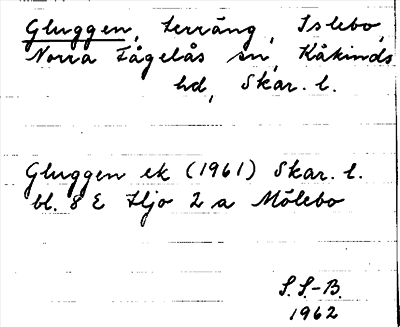 Gluggen, terräng, Islebo,
Norra Fågelås sn, Kåkinds
hd, Skar. l.
Gluggen ek (1961) Skar. l.
bl. 8 E Hjo 2 a Mölebo
S. S.-B.
1962